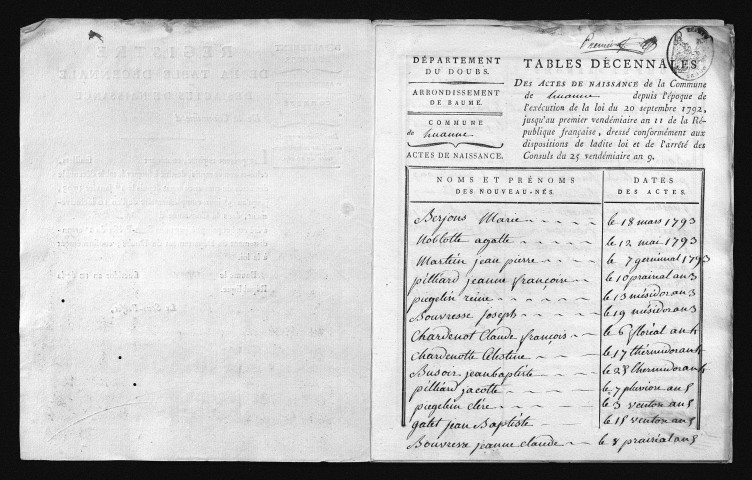 DÉPARTEMENT
DU DOUBS.
ARRONDISSEMENT
DE BAUME.
COMMUNE
de huanne
ACTES DE NAISSANCE.
TABLES DÉCENNALES
DES ACTES DE NAISSANCE de la Commune
de huanne depuis l'époque de
l'exécution de la loi du 20 septembre 1792,
jusqu'au premier vendémiaire an 11 de la Ré-
publique française, dressé conformément aux
dispositions de ladite loi et de l'arrêté des
Consuls du 25 vendémiaire an 9.
NOMS ET PRÉNOMS
DES NOUVEAU-NÉS.
DATES
DES ACTES.
Berjons Marie le 18 mars 1793
Noblotte agatte le 12 mai 1793
Martein jean pierre le 7 germinal 1793
pilliard jeanne françoise le 10 prairial an 3
pugelin reine le 13 mésidor an 3
Bouvresse Joseph le 19 mésidor an 3
Chardenot Claude françois le 6 floréal an 4
chardenotte Célestine le 17 thermidor an 4
Busoir jean baptiste le 28 thermidor an 4
pilliard jacotte le 7 pluviose an 5
pugelin clére le 3 ventose an 5
galet jean Baptiste le 15 ventose an 5
Bouvresse jeanne claude le 8 prairial an 5